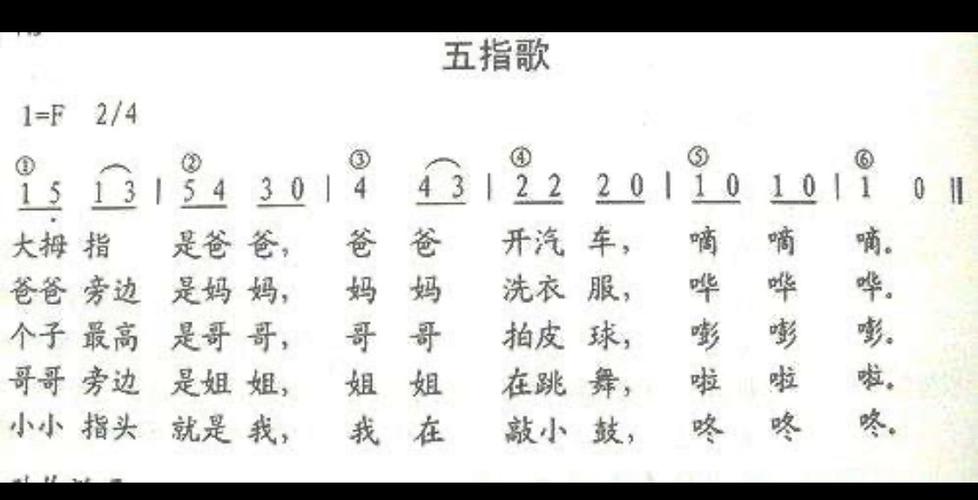 五指歌
1=F 2/4
① ② ③ ④ ⑤ ⑥
1 5 1 3 | 5 4 3 0 | 4 4 3 | 2 2 2 0 | 1 0 1 0 | 1 0 ‖
大拇 指 是爸 爸， 爸 爸 开汽 车， 嘀 嘀 嘀。
爸爸 旁边 是妈 妈， 妈 妈 洗衣 服， 哗 哗 哗。
个子 最高 是哥 哥， 哥 哥 拍皮 球， 嘭 嘭 嘭。
哥哥 旁边 是姐 姐， 姐 姐 在跳 舞， 啦 啦 啦。
小小 指头 就是 我， 我 在 敲小 鼓， 咚 咚 咚。